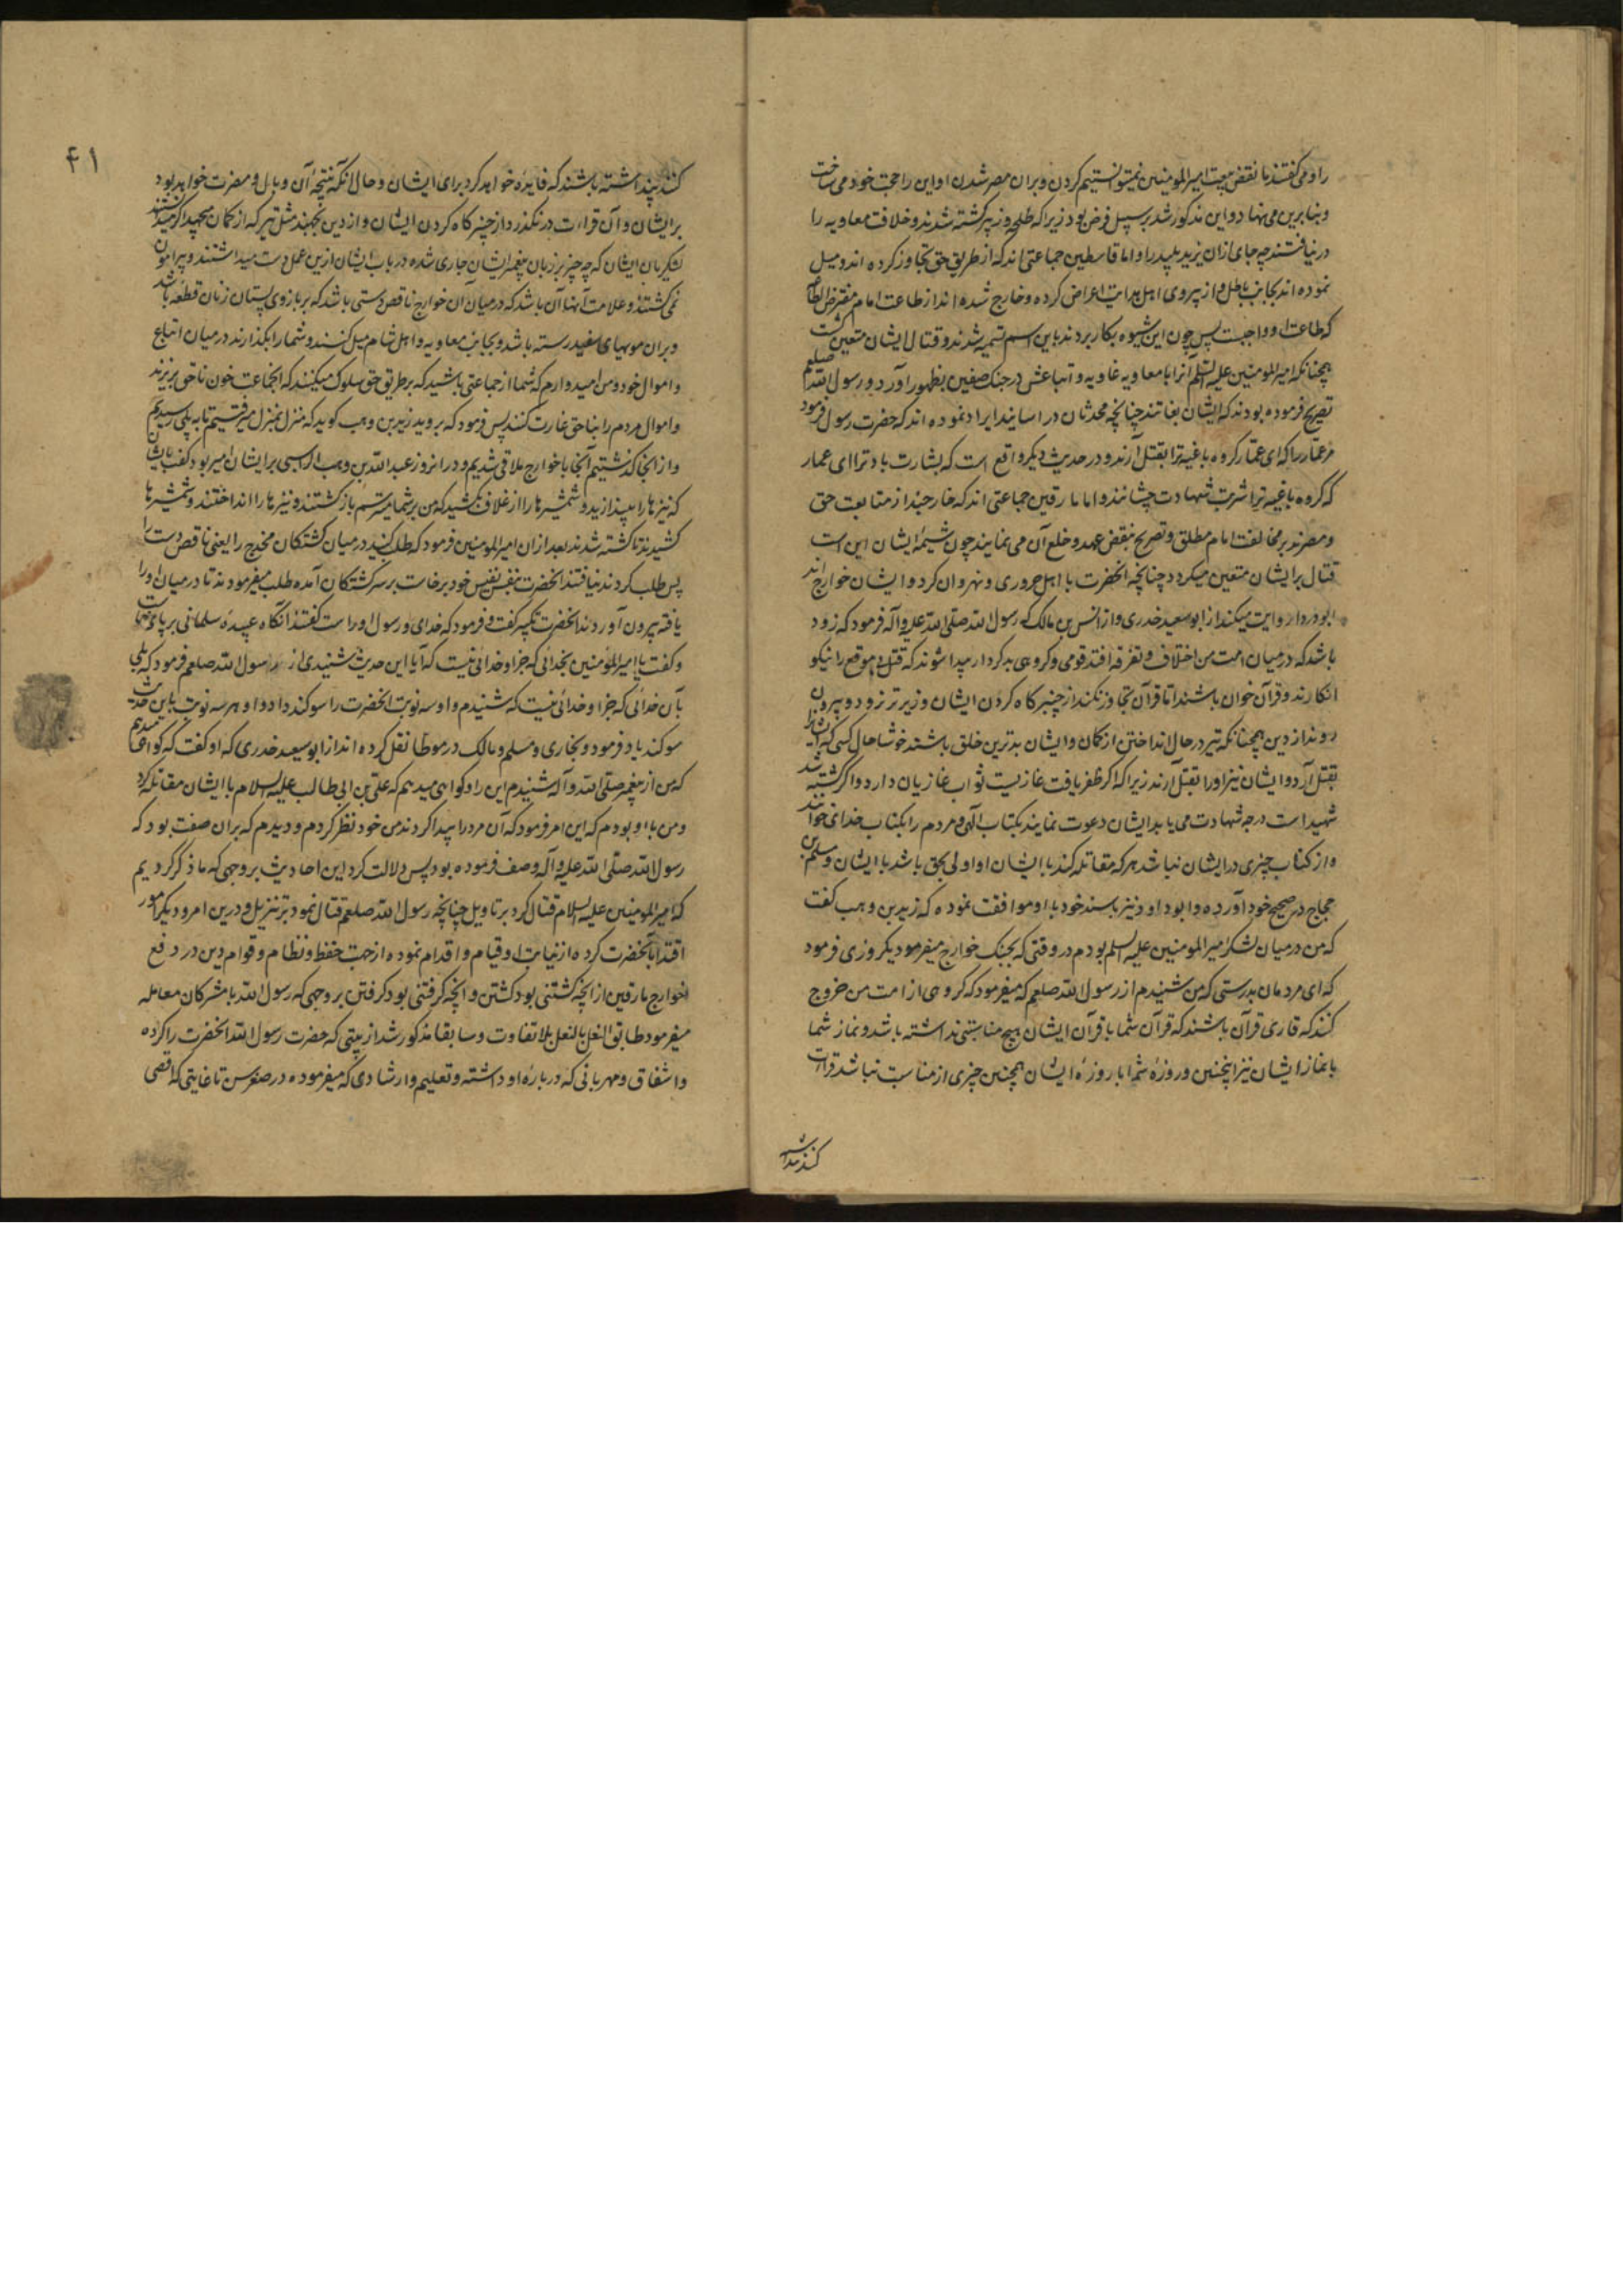 را و می گفتند ما نقض بیعت امیرالمومنین نمیتوانستیم کردن و بران مصر شدن او این را حجت خود می ساخت
و بنا برین می نهاد و این مذکور شد بر سبیل فرض بود زیرا که طلحه و زبیر کشته شدند و خلافت معاویه را
در نیافتند چه جای ازان یزید پلید را و اما قاسطین جماعتی اند که از طریق حق تجاوز کرده اند و میل
نموده اند بجانب باطل و از پیروی اهل هدایت اعراض کرده و خارج شده اند از طاعت امام مفترض الطاعه
که طاعت او واجبست پس چون این شیوه بکار بردند باین اسم تسمیه شدند و قتال ایشان متعین گشت
همچنانکه امیرالمومنین علیه السلم آنرا با معاویه غاویه و اتباعش در جنگ صفین بظهور آورد و رسول الله صلعم
تصریح فرموده بودند که ایشان بغاتند چنانچه محدثان در اسانید ایراد نموده اند که حضرت رسول فرمود
مر عمار را که ای عمار گروه باغیه ترا بقتل آرند و در حدیث دیگر واقع است که بشارت باد ترا ای عمار
که گروه باغیه ترا شربت شهادت چشانند و اما مارقین جماعتی اند که خارجند از متابعت حق
و مصرند بر مخالفت امام مطلق و تصریح بنقض عهد و خلع آن می نمایند چون شیمه ایشان این است
قتال بر ایشان متعین میگردد چنانچه انحضرت با اهل حروری و نهروان کرد و ایشان خوارج اند
ابو دردا روایت میکند از ابو سعید خدری و از انس بن مالک که رسول الله صلی الله علیه و آله فرمود که زود
باشد که در میان امت من اختلاف و تفرقه افتد قومی و گروهی بد کردار پیدا شوند که قتل بی موقع را نیکو
انگارند و قرآن خوان باشند اما قرآن تجاوز نکند از چنبر گاه گردن ایشان و زیرتر نرود و بیرون
روند از دین همچنانکه تیر در حال انداختن از کمان و ایشان بدترین خلق باشند خوشا حال کسی که ایشانرا
بقتل آرد و ایشان نیز او را بقتل آرند زیرا که اگر ظفر یافت غازیست ثواب غازیان دارد و اگر کشته شد
شهیداست درجه شهادت می یابد ایشان دعوت نمایند بکتاب الهی و مردم را بکتاب خدای خوانند
و از کتاب چیزی در ایشان نباشد هر که مقاتله کند با ایشان او اولی بحق باشد با ایشان و مسلم بن
حجاج در صحیح خود آورده و ابو داود نیز باسند خود با او موافقت نموده که زید بن وهب گفت
که من در میان لشکر امیرالمومنین علیه السلم بودم در وقتی که بجنگ خوارج میفرمود یکروزی فرمود
که ای مردمان بدرستی که من شنیدم از رسول الله صلعم که میفرمود که گروهی از امت من خروج
کنند که قاری قرآن باشند که قرآن شما با قرآن ایشان هیچ مناسبتی نداشته باشد و نماز شما
با نماز ایشان نیز اینچنین و روزه شما با روزه ایشان همچنین چیزی از مناسبت نباشد قراات
کنند پنداشته
۴۱
کنند پنداشته باشند که فایده خواهد کرد برای ایشان و حال آنکه نتیجه آن وبال و مضرت خواهد بود
بر ایشان و آن قراءت در نگذرد از چنبر گاه گردن ایشان و از دین بجهند مثل تیر که از کمان میجهد اگر میدانستند
لشکریان ایشان که چه چیز بر زبان پیغمبر ایشان جاری شده در باب ایشان ازین عمل دست میداشتند و پیرامون
نمی گشتند و علامت آنها آن باشد که در میان آن خوارج ناقص دستی باشد که بر بازوی پستان زنان قطعه باشد
و بران مویهای سفید رسته باشد و بجانب معاویه و اهل شام میل کنند و شما را بگذارند در میان اتباع
و اموال خود و من امیدوارم که شما از جماعتی باشید که بر طریق حق سلوک میکنند که انجماعت خون ناحق بریزند
و اموال مردم را بناحق غارت کنند پس فرمود که بروید زید بن وهب گوید که منزل بمنزل میرفتیم تا به پلی رسیدیم
و از انجا گذشتیم آنجا با خوارج ملاقی شدیم و در انروز عبدالله بن وهب الراسبی بر ایشان امیر بود گفت بایشان
که نیزها را بیندازید و شمشیرها را از غلاف بکشید که من بر شما میترسم بازگشتند و نیزها را انداختند و شمشیرها
کشیدند تا کشته شدند بعد ازان امیرالمومنین فرمود که طلب کنید در میان کشتگان مخدج را یعنی ناقص دست را
پس طلب کردند نیافتند انحضرت بنفس نفیس خود برخاست بر سر کشتگان آمده طلب میفرمودند تا در میان او را
یافته بیرون آوردند انحضرت تکبیر گفت و فرمود که خدای و رسول او راست گفتند آنگاه عبیده سلمانی بر پای خاست
و گفت یا امیرالمؤمنین بخدائی که جز او خدائی نیست که آیا این حدیث شنیدی از رسول الله صلعم فرمود که بلی
بآن خدائی که جز او خدائی نیست که شنیدم و او سه نوبت انحضرت را سوگند داد و او هر سه نوبت باین حدیث
سوگند یاد فرمود و بخاری و مسلم و مالک در موطا نقل کرده اند از ابو سعید خدری که او گفت که گواهی میدهم
که من از پیغمبر صلی الله و آله شنیدم این را و گواهی میدهم که علی بن ابی طالب علیه السلام با ایشان مقاتله کرد
و من با او بودم که این امر فرمود که آن مرد را پیدا کردند من خود نظر کردم و دیدم که بران صفت بود که
رسول الله صلی الله علیه و آله وصف فرموده بود پس دلالت کرد این احادیث بر وجهی که ما ذکر کردیم
که امیرالمومنین علیه السلام قتال کرد بر تاویل چنانچه رسول الله صلعم قتال نمود بر تنزیل و درین امر و دیگر امور
اقتدا بآنحضرت کرده از نیابت او قیام و اقدام نموده از جهت حفظ و نظام و قوام دین در دفع
خوارج مارقین از انچه کشتنی بود کشتن و انچه گرفتنی بود گرفتن بر وجهی که رسول الله با مشرکان معامله
میفرمود طابق النعل بالنعل بلا تفاوت و سابقا مذکور شد از بیتی که حضرت رسول الله انحضرت را کرده
و اشفاق و مهربانی که درباره او داشته و تعلیم و ارشادی که میفرموده در صغر سن تا غایتی که اقصی